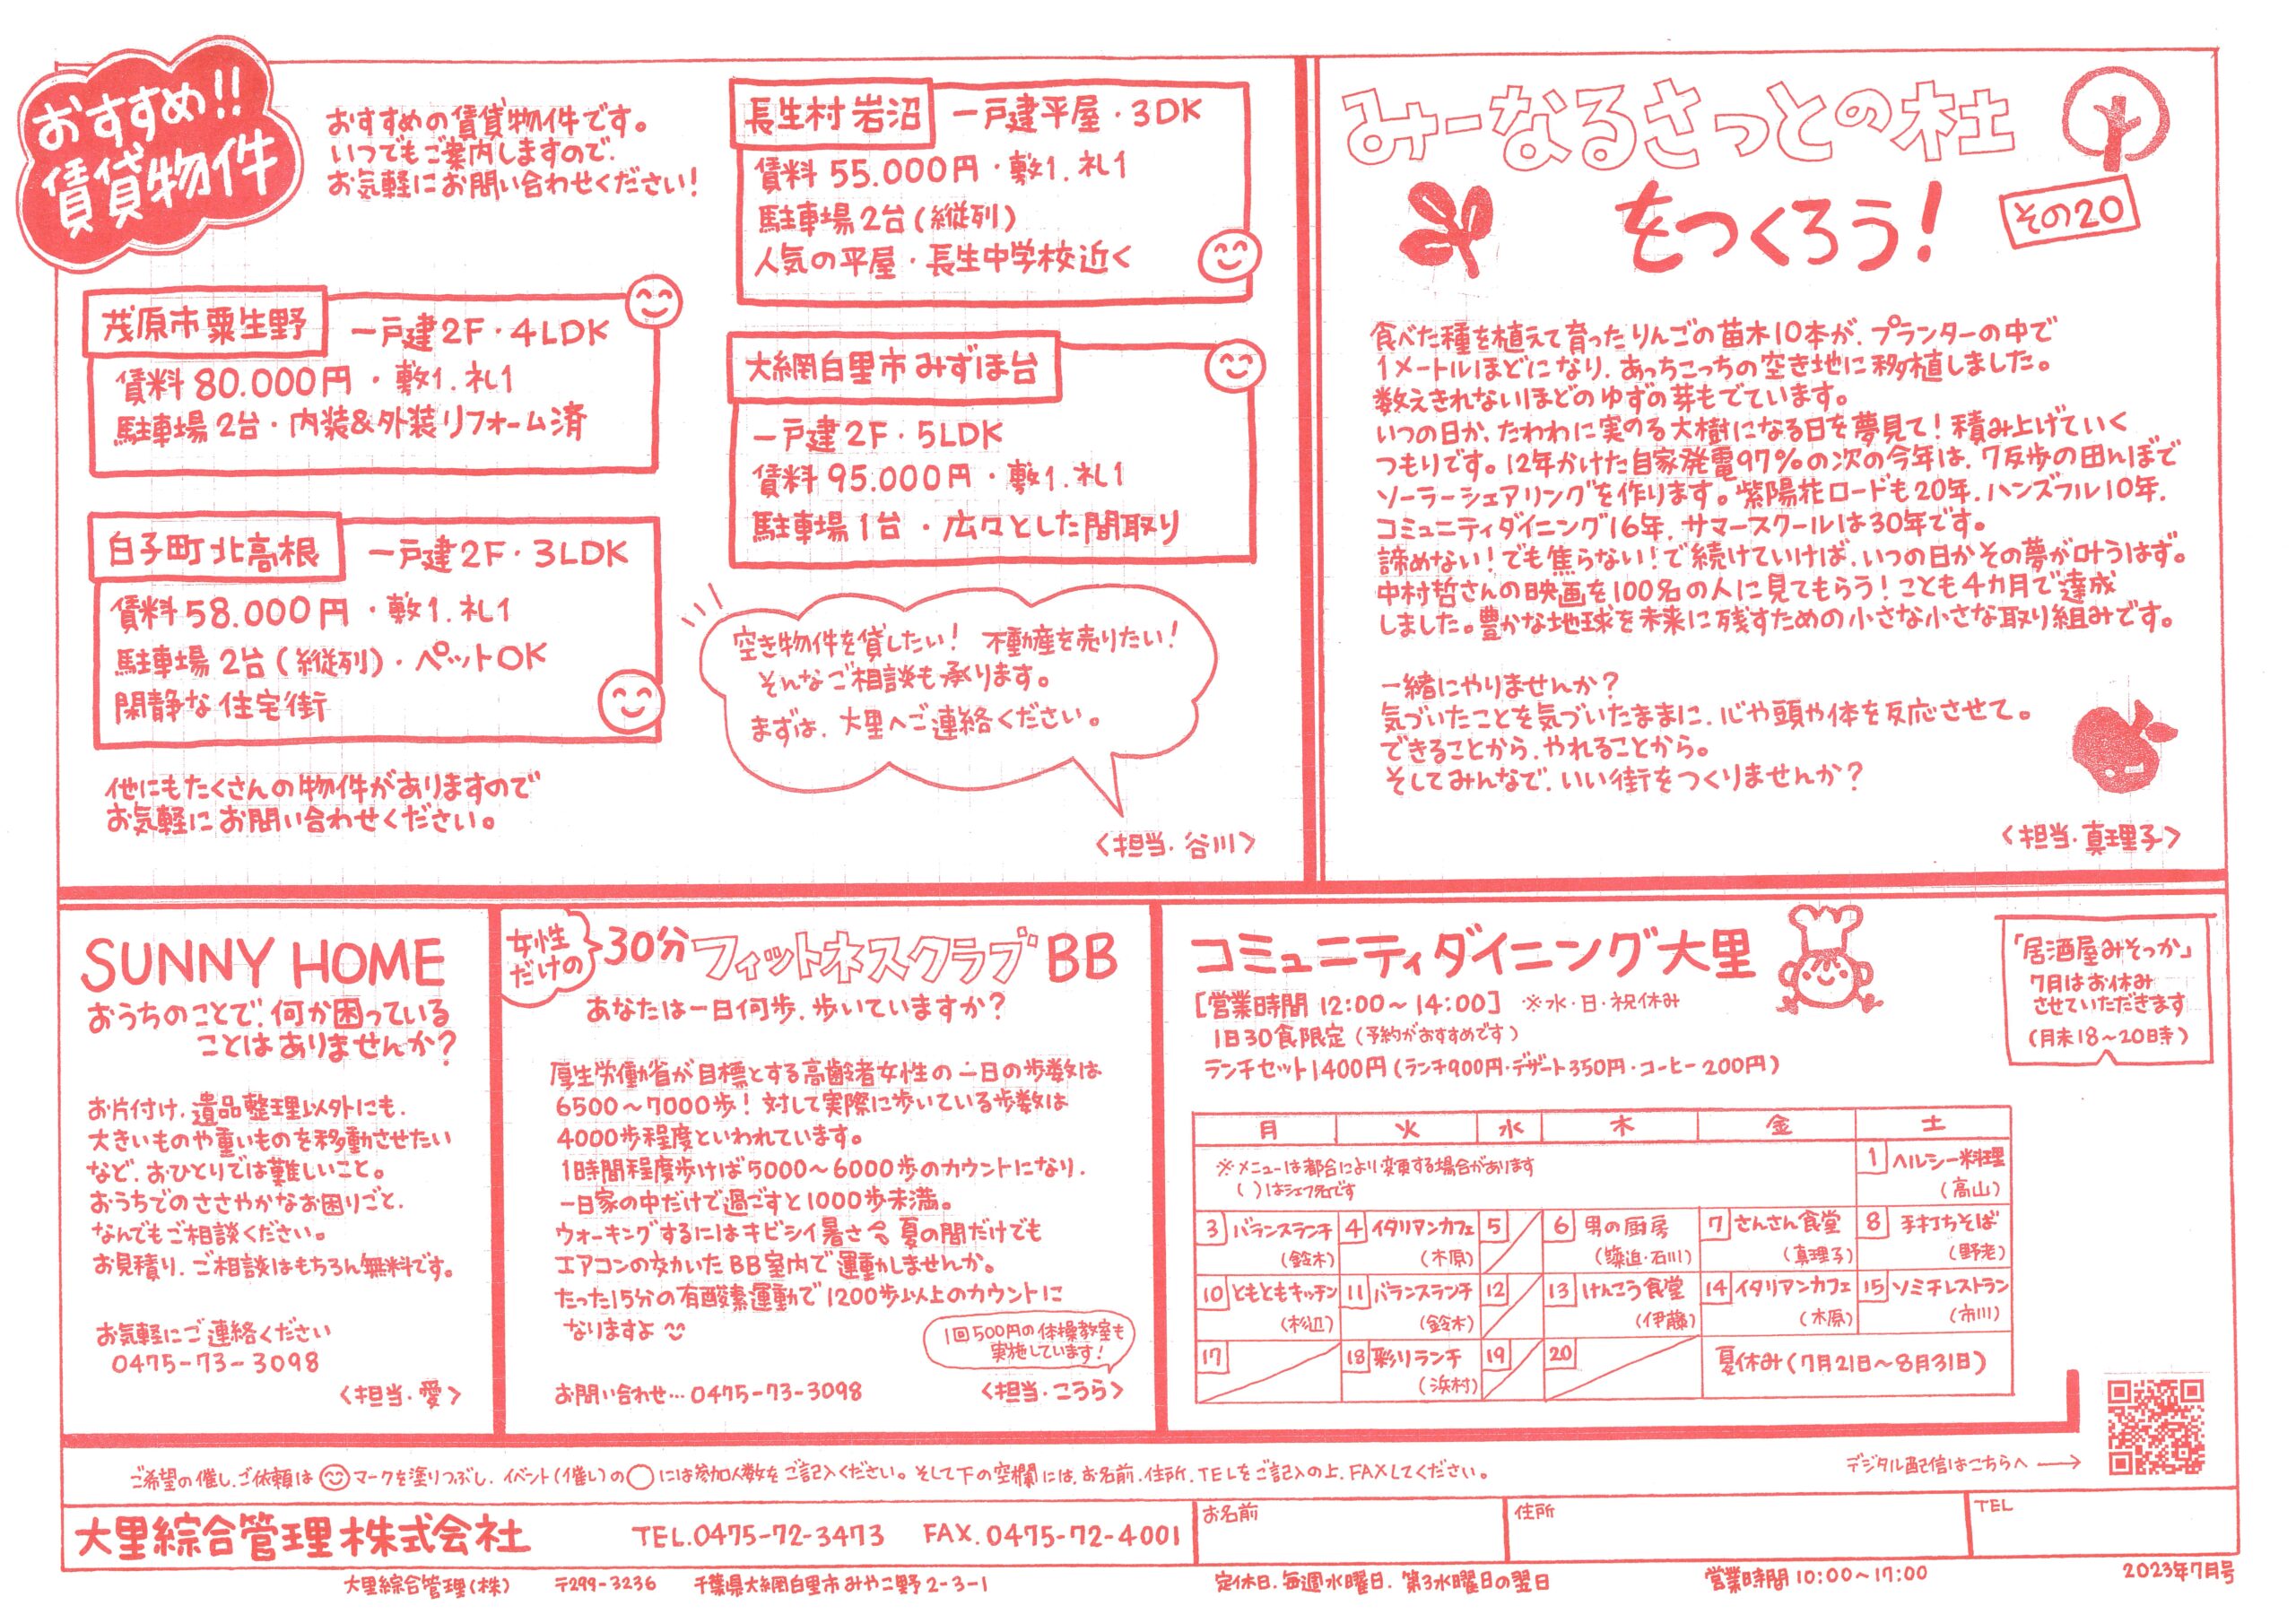 おすすめ!!
賃貸物件
おすすめの賃貸物件です。
いつでもご案内しますので、
お気軽にお問い合わせください!
茂原市粟生野 一戸建2F・4LDK
賃料80.000円・敷1.礼1
駐車場2台・内装&外装リフォーム済
白子町北高根 一戸建2F・3LDK
賃料58.000円・敷1.礼1
駐車場2台(縦列)・ペットOK
閑静な住宅街
他にもたくさんの物件がありますので
お気軽にお問い合わせください。
長生村岩沼 一戸建平屋・3DK
賃料55.000円・敷1.礼1
駐車場2台(縦列)
人気の平屋・長生中学校近く
大網白里市みずほ台
一戸建2F・5LDK
賃料95.000円・敷1.礼1
駐車場1台・広々とした間取り
空き物件を貸したい! 不動産を売りたい!
そんなご相談も承ります。
まずは、大里へご連絡ください。
<担当.谷川>
みーなるさっとの杜
をつくろう!
その20
食べた種を植えて育ったりんごの苗木10本が、プランターの中で
1メートルほどになり、あっちこっちの空き地に移植しました。
数えきれないほどのゆずの芽もでています。
いつの日か、たわわに実のる大樹になる日を夢見て!積み上げていく
つもりです。12年かけた自家発電97%の次の今年は、7反歩の田んぼで
ソーラーシェアリングを作ります。紫陽花ロードも20年、ハンズフル10年、
コミュニティダイニング16年、サマースクールは30年です。
諦めない!でも焦らない!で続けていけば、いつの日かその夢が叶うはず。
中村哲さんの映画を100名の人に見てもらう!ことも4カ月で達成
しました。豊かな地球を未来に残すための小さな小さな取り組みです。
一緒にやりませんか?
気づいたことを気づいたままに、心や頭や体を反応させて。
できることから、やれることから。
そしてみんなで、いい街をつくりませんか?
<担当.真理子>
SUNNY HOME
おうちのことで、何か困っている
ことはありませんか?
お片付け、遺品整理以外にも、
大きいものや重いものを移動させたい
など、おひとりでは難しいこと。
おうちでのささやかなお困りごと、
なんでもご相談ください。
お見積り、ご相談はもちろん無料です。
お気軽にご連絡ください
0475-73-3098
<担当.愛>
女性
だけの
30分フィットネスクラブBB
あなたは一日何歩、歩いていますか?
厚生労働省が目標とする高齢者女性の一日の歩数は
6500~7000歩! 対して実際に歩いている歩数は
4000歩程度といわれています。
1時間程度歩けば5000~6000歩のカウントになり、
一日家の中だけで過ごすと1000歩未満。
ウォーキングするにはキビシイ暑さ今夏の間だけでも
エアコンの効いたBB室内で運動しませんか。
たった15分の有酸素運動で1200歩以上のカウントに
なりますよ
1回500円の体操教室も
実施しています!
お問い合わせ…0475-73-3098
<担当.こうら>
コミュニティダイニング大里
[営業時間 12:00~14:00] ※水・日・祝休み
1日30食限定(予約がおすすめです)
ランチセット1400円(ランチ900円・デザート350円・コーヒー200円)
「居酒屋みそっか」
7月はお休み
させていただきます
(月末18~20時)
月 火 水 木 金 土
※メニューは都合により変更する場合があります
( )はシェフ名です
1 ヘルシー料理
(高山)
3 バランスランチ 4 イタリアンカフェ 5 6 男の厨房 7 さんさん食堂 8 手打ちそば
(鈴木) (木原) (築迫・石川) (真理子) (野老)
10 ともともキッチン 11 バランスランチ 12 13 けんこう食堂 14 イタリアンカフェ 15 ソミチレストラン
(杉辺) (鈴木) (伊藤) (木原) (市川)
17 18 彩りランチ 19 20 夏休み(7月21日~8月31日)
(浜村)
デジタル配信はこちらへ→
ご希望の催し、ご依頼はマークを塗りつぶし、イベント(催し)の○には参加人数をご記入ください。そして下の空欄には、お名前、住所、TELをご記入の上、FAXしてください。
大里綜合管理株式会社 TEL.0475-72-3473 FAX.0475-72-4001 お名前 住所 TEL
大里綜合管理(株) 〒299-3236 千葉県大網白里市みやこ野2-3-1 定休日.毎週水曜日、第3水曜日の翌日 営業時間10:00~17:00 2023年7月号